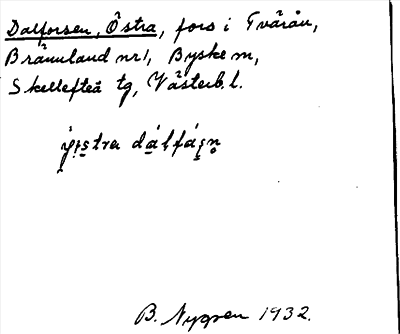 Dalforsen, Östra, fors i Tvärån,
Brännland nr 1, Byske m,
Skellefteå tg, Västerb. l.
B. Nygren 1932.